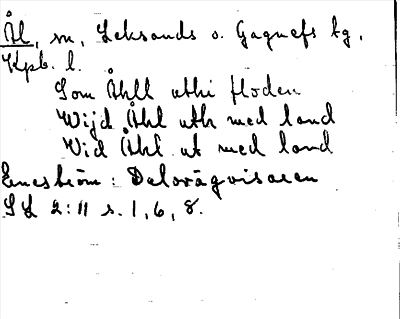 Ål, sn, Leksands o. Gagnefs tg,
Kpb. l.
Som Åhll uthi floden
Wijd Åhl uth med land
Vid Åhl ut med land
Eneström: Dalvägvisaren
SL 2:11 s. 1, 6, 8.